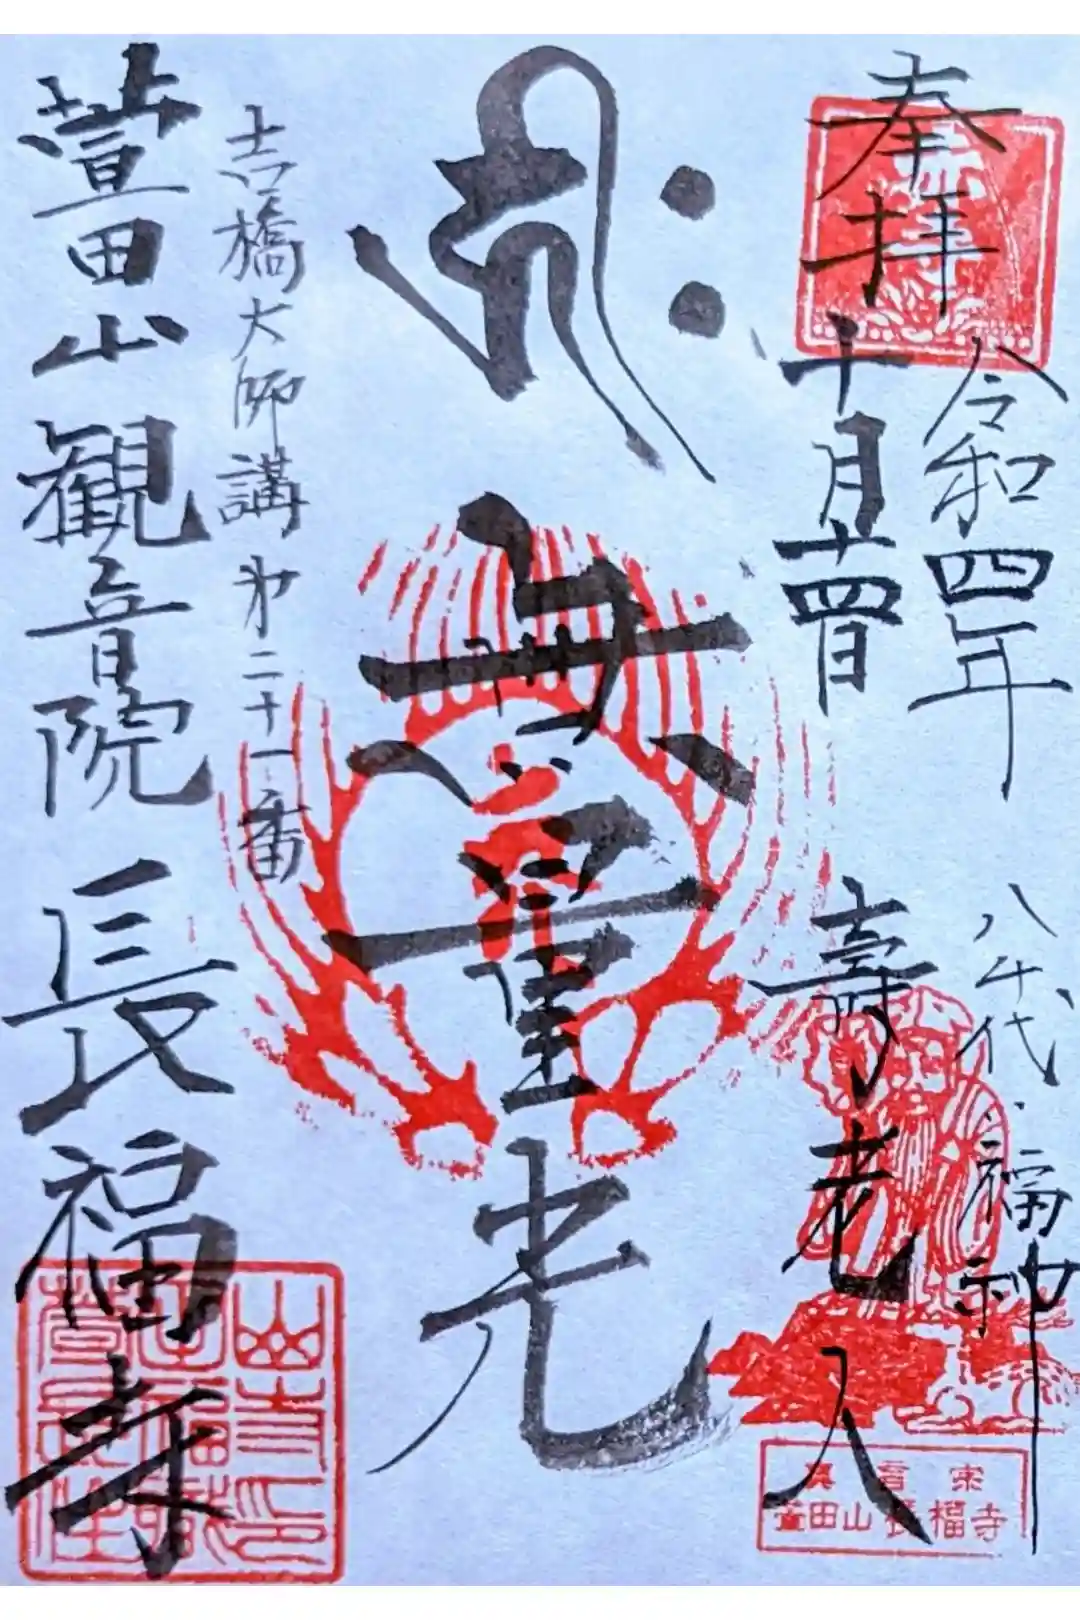 奉拝
令和四年
十月十四日
八千代 福神
壽老人
𑖮𑖿𑖨𑖱𑖾
無量光
吉橋大師講 オ二十一番
萱田山 観音院 長福寺
真言宗
萱田山 長福寺